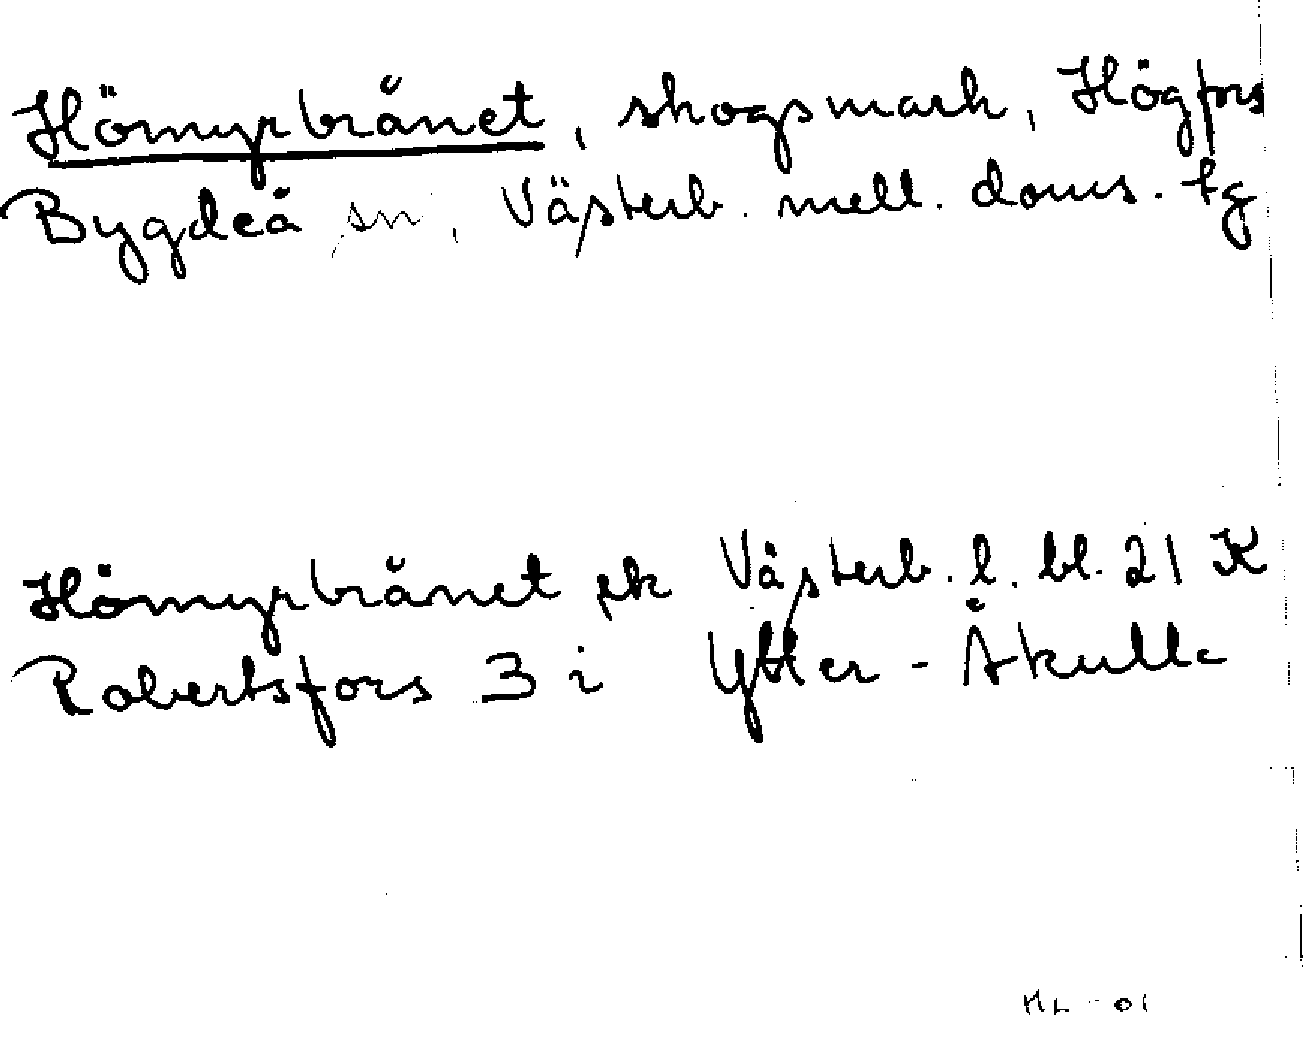 Hömyrbrånet, skogsmark, Högfors
Bygdeå sn, Västerb. mell. doms. tg
Hömyrbrånet ek Västerb. l. bl. 21 K
Robertsfors 3 i Ytter-Åkulla
ML-01